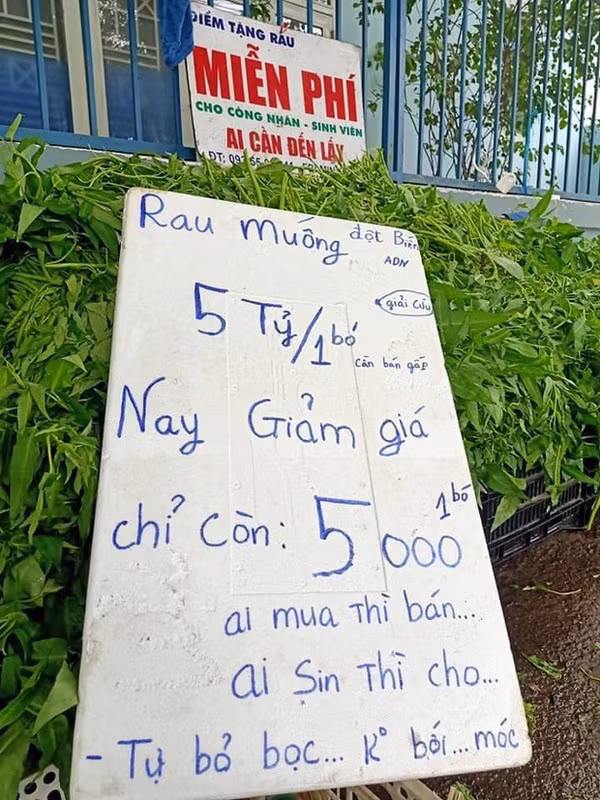 ĐIỂM TẶNG RAU
MIỄN PHÍ
CHO CÔNG NHÂN - SINH VIÊN
AI CẦN ĐẾN LẤY
Rau muống đột Biến
ADN
giải cứu
5 Tỷ/1 bó
cần bán gấp
Nay Giảm giá
chỉ còn: 5000 1 bó
ai mua thì bán...
ai Sin thì cho...
- Tự bỏ bọc... K° bới... móc